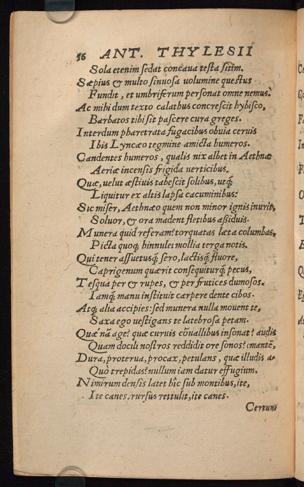 56 ANT. THYLESII
Sola etenim sedat concaua testa sitim.
Sæpius & multo sinuosa uolumine questus
Fundit, et umbriferum personat omne nemus.
Ac mihi dum texto calathus concrescit hybisco,
Barbatos tibi sit pascere cura greges.
Interdum pharetrata fugacibus obuia ceruis
Ibis Lyncæo tegmine amicta humeros.
Candentes humeros, qualis nix albet in Aethnæ
Aeriæ incensis frigida uerticibus.
Quæ, uelut æstiuis tabescit solibus, utq;
Liquitur ex altis lapsa cacuminibus:
Sic miser, Aethnæo quem non minor ignis inurit,
Soluor, & ora madent fletibus aßiduis.
Munera quid referam? torquatas læta columbas,
Picta quoq; hinnulei mollia terga notis.
Qui tener assuetusq; sero, lactisq; fluore,
Caprigenum quærit consequiturq; pecus,
Tesqua per & rupes, & per frutices dumosos.
Iamq; manu instituit carpere dente cibos.
Atq; alia accipies: sed munera nulla mouent te,
Saxa ego uestigans te latebrosa petam.
Quæ nã age? quæ curuis cõuallibus insonat? audis
Quam docili nostros reddidit ore sonos? emantẽ,
Dura, proterua, procax, petulans, quæ illudis a-
Quò trepidas? nullum iam datur effugium.
Nimirum densis latet hîc sub montibus, ite,
Ite canes, rursus rettulit, ite canes.
Certum